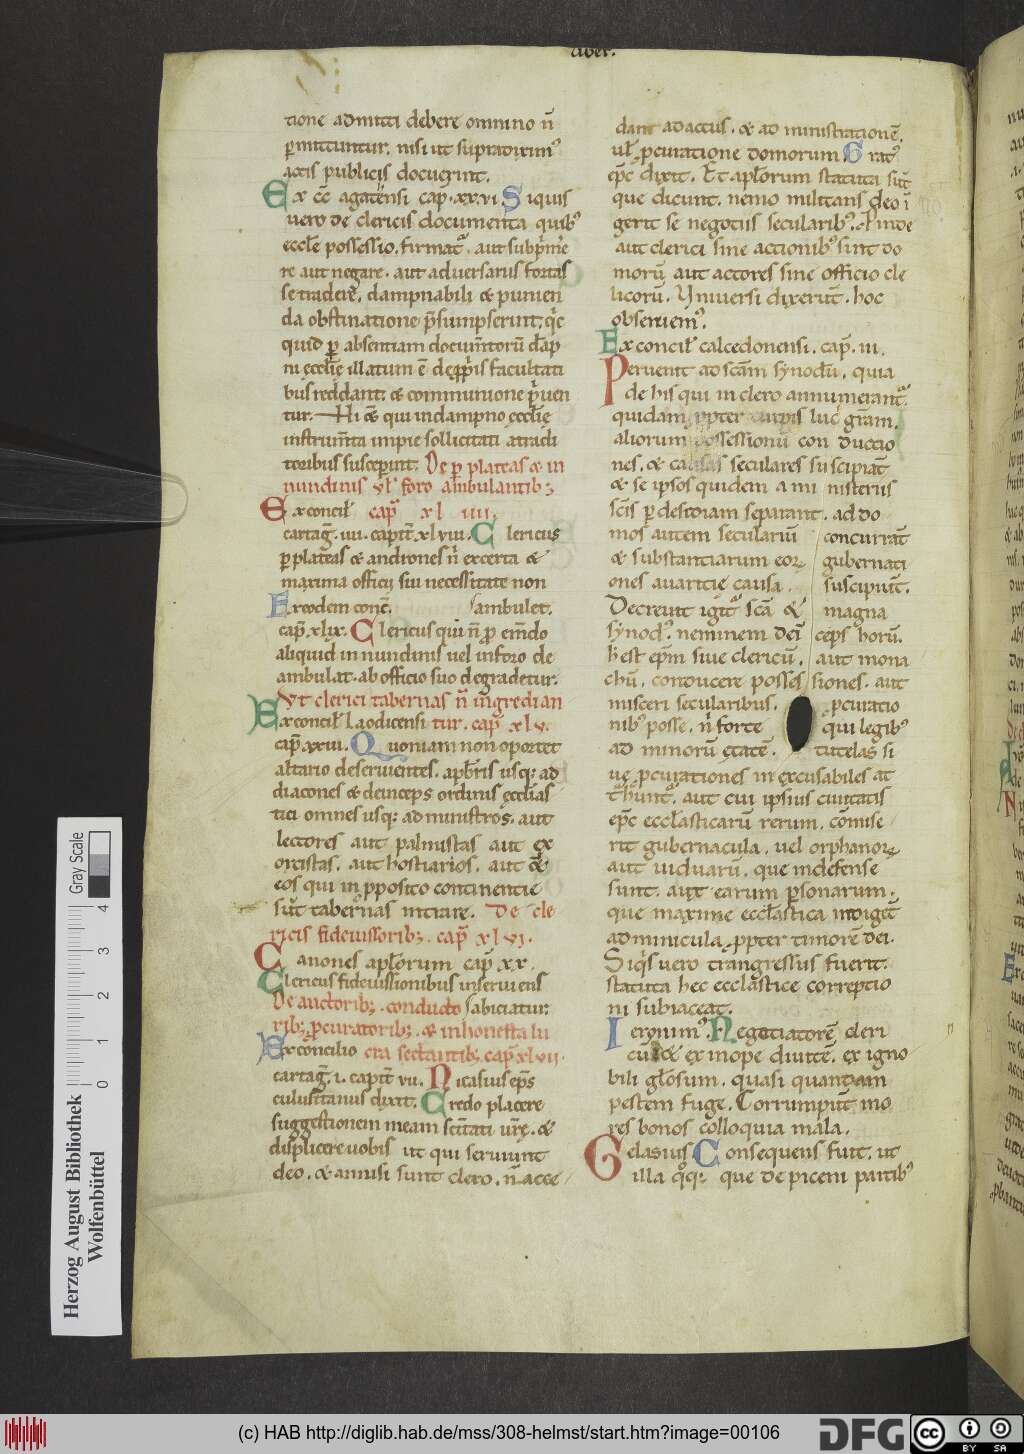 liber.
tione admitti debere omnino n̄
p̄mittuntur, nisi ut supradiximꝰ
actis publicis docuerint.
Ex cc̄ agatensi cap̄. xx.vi. Siquis
uero de clericis documenta quibꝰ
eccl̄e possessio. firmat᷑. aut supprīme
re aut negare. aut aduersariis fortas
se tradere, dampnabili & punien
da obstinatione p̄sumpserint, q̄c
quid ꝑ absentiam documtorū dāp
ni eccl̄ie illatum ē de ꝓp̄iis facultati
bus reddant. & communione p̄uen
tur. Hi &̄ qui indampno eccl̄ie
instrum̄ta impie sollicitati atradi
toribus susceperint. De ꝑ plateas & in
nundinis vl̄ foro ambulantib;
Ex concil̄ cap̄ xl iiii.
cartaḡ. iiii. capit̄. xl viii. Clericus
ꝑ plateas & andrones n̄ excerta &
maxima officij sui necessitate non
Ex eodem conc̄. ambulet.
cap̄. xlix. Clericus qui n̄ ꝓ em̄do
aliquid in nundinis uel in foro de
ambulat. ab officio suo degradetur.
Vt clerici tabernas n̄ ingredian
Ex concil̄ laodicensi tur. cap̄ xl v.
cap̄. xxiii. Quoniam non oportet
altario deseruientes. a p̄bris usq; ad
diacones & deinceps ordinis eccl̄ias
tici omnes usq; ad ministros, aut
lectores aut palmistas aut ex
orcistas. aut hostiarios. aut &̄
eos qui in ꝓposito continentie
sūt tabernas intrare. De cle
ricis fideiussorib;. cap̄ xl vi.
Canones apl̄orum cap̄ xx.
Clericus fideiussionibus inseruiens
De auctorib;. conducto abiciatur.
rib; ꝓcuratorib;. & inhonesta lu
Ex concilio cra sectantib; cap̄ xl vii.
cartaḡ. i. capit̄ vii. Nicasius ep̄s
culusitanus dixit. Credo placere
suggestionem meam sc̄itati ur̄e. &
displicere uobis ut qui seruiunt
deo. & annisi sunt clero. n̄ acce
dant ad actus. & ad ministrationē.
ul̄ ꝓcuratione domorum. Gratꝰ
ep̄c dixit. Et apl̄orum statuta sūt
que dicunt. nemo militans deo ī
gerit se negotiis secularibꝰ. Proinde
aut clerici sine actionibꝰ sint do
morū aut actores sine officio cle
licorū. Vniuersi dixerūt. hoc
obseruemꝰ.
Ex concil̄ calcedonensi. cap̄. iii.
Peruenit ad sc̄am synodū, quia
de his qui in clero annumerant᷑.
quidam ꝓpter turpis luc̄ gr̄am.
aliorum possessionū con ductio
nes. & causas seculares suscipiāt
& se ipsos quidem a mi nisteriis
sc̄is ꝑ desidiam separant. ad do
mos autem seculariū concurrāt
& substantiarum eoꝝ gubernati
ones auaritie causa. suscipiūt.
Decreuit igit᷑ sc̄a & magna
synodꝰ. neminem dei ceps horū.
h̄ est ep̄m siue clericū, aut mona
chū, conducere posses siones. aut
misceri secularibus. ꝓcuratio
nibꝰ posse. n̄ forte qui legibꝰ
ad minorū etatē. tutelas si
ue ꝓcurationes inexcusabiles at
t̄hunt᷑. aut cui ipsius ciuitatis
ep̄c eccl̄asticarū rerum. cōmise
rit gubernacula. uel orphanoꝝ
aut uiduarū, que indefense
sunt. aut earum ꝑsonarum.
que maxime eccl̄astica indigēt
adminicula ꝓpter timorē dei.
Siq̄s uero trangressus fuerit.
statuta hec ecclāstice correptio
ni subiaceat.
Ieronimꝰ. Negotiatorē cleri
cū & ex inope diuitē. ex igno
bili gl̄osum. quasi quandam
pestem fuge. Corrumpūt mo
res bonos colloquia mala.
Gelasius. Consequens fuit. ut
illa q̊q; que de piceni partibꝰ
Herzog August Bibliothek
Wolfenbüttel
0 1 2 3 4
Gray Scale
(c) HAB http://diglib.hab.de/mss/308-helmst/start.htm?image=00106
DFG
cc BY SA